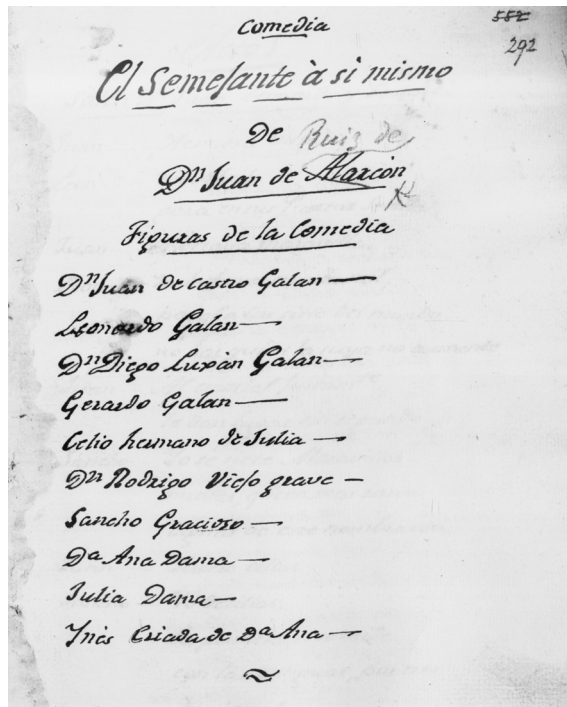 Comedia
552
292
El Semejante à si mismo
De Ruiz de
Dn Juan de Alarcòn
Figuras de la Comedia
Dn Juan de castro Galan —
Leonardo Galan —
Dn Diego Luxàn Galan —
Gerardo Galan —
Celio hermano de Julia —
Dn Rodrigo Viejo grave —
Sancho Gracioso —
Da Ana Dama —
Julia Dama —
Ynès Criada de Da Ana —